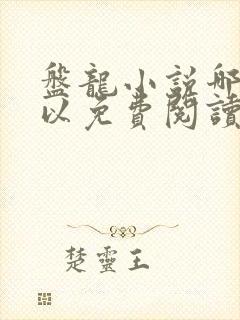 盤龍小説哪
以免費閱讀
楚靈王